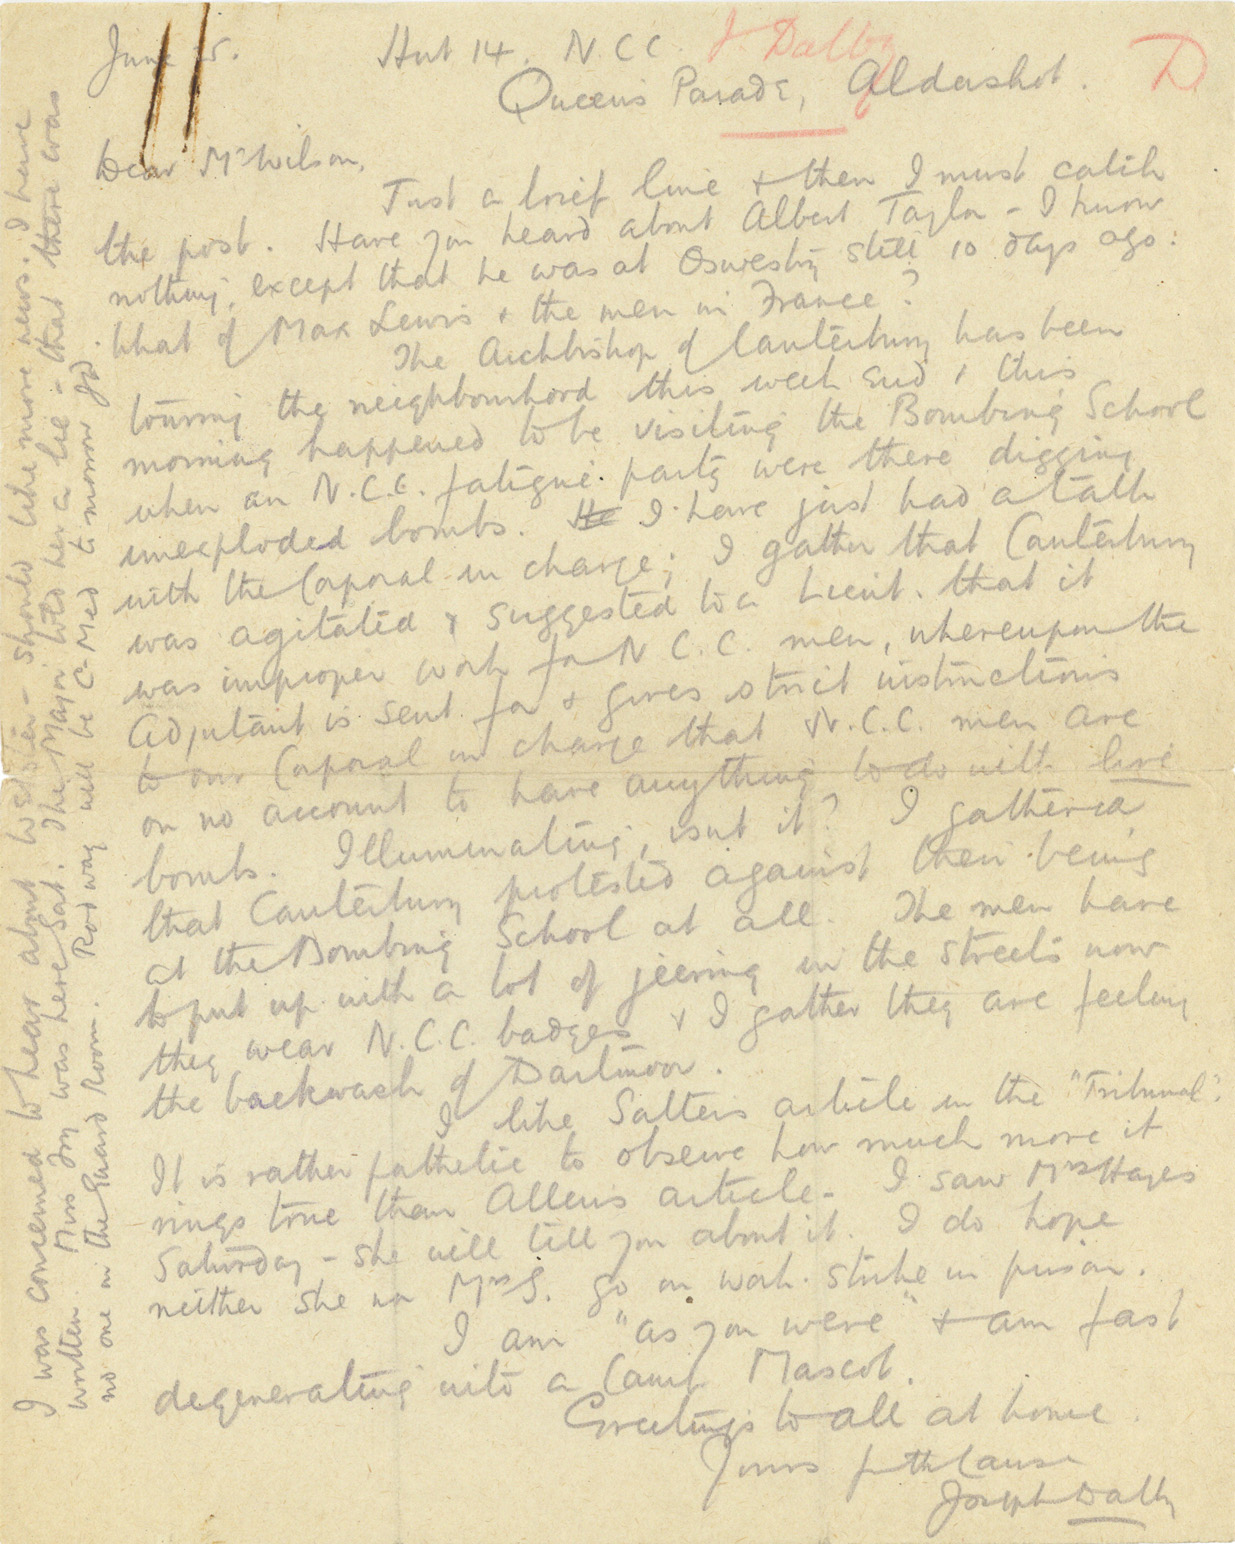 June 25. Hut 14. N.C.C. J. Dalby D
Queens Parade, Aldershot.
Dear Mr Wilson,
Just a brief line & then I must catch
the post. Have you heard about Albert Taylor - I know
nothing, except that he was at Oswestry still 10 days ago:
What of Max Lewis & the men in France?
The Archbishop of Canterbury has been
touring the neighbourhood this week end & this
morning happened to be visiting the Bombing School
when an N.C.C. fatigue party were there digging
unexploded bombs. I have just had a talk
with the Corporal in charge; I gather that Canterbury
was agitated & suggested to a Lieut. that it
was improper work for N.C.C. men, whereupon the
Adjutant is sent for & gives strict instructions
to our Corporal in charge that N.C.C. men are
on no account to have anything to do with live
bombs. Illuminating, isnt it? I gathered
that Canterbury protested against their being
at the Bombing School at all. The men have
to put up with a lot of jeering in the streets now
they wear N.C.C. badges & I gather they are feeling
the backwash of Dartmoor.
I like Salters article in the "Tribunal".
It is rather pathetic to observe how much more it
rings true than Allens article. I saw Mrs Hayes
Saturday - she will tell you about it. I do hope
neither she nor Mrs G. go on work strike in prison.
I am "as you were" & am fast
degenerating into a Camp Mascot.
Greetings to all at home.
Yours for the Cause
Joseph Dalby
I was concerned to hear about - should like more news. I have
written. Miss Ivy was here Sat. The Major told her a lie - that there was
no one in the Guard Room. Rodway will be C-Med to morrow